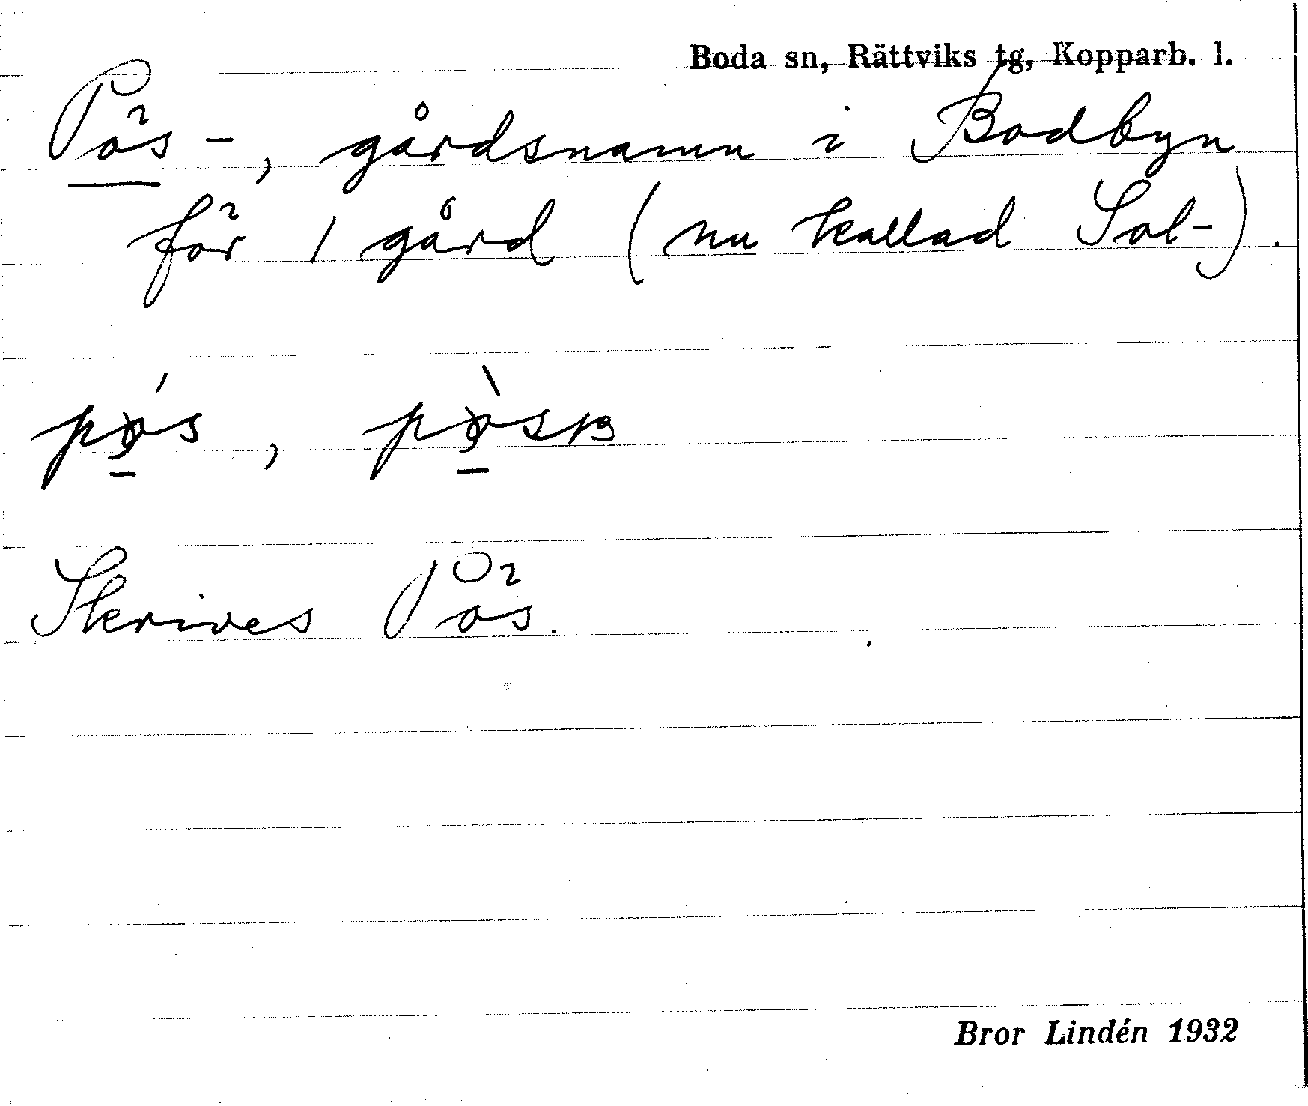 Boda sn, Rättviks tg, Kopparb. l.
Pös-, gårdsnamn i Bodbyn
för 1 gård (nu kallad Sol-).
Skrives Pös.
Bror Lindén 1932